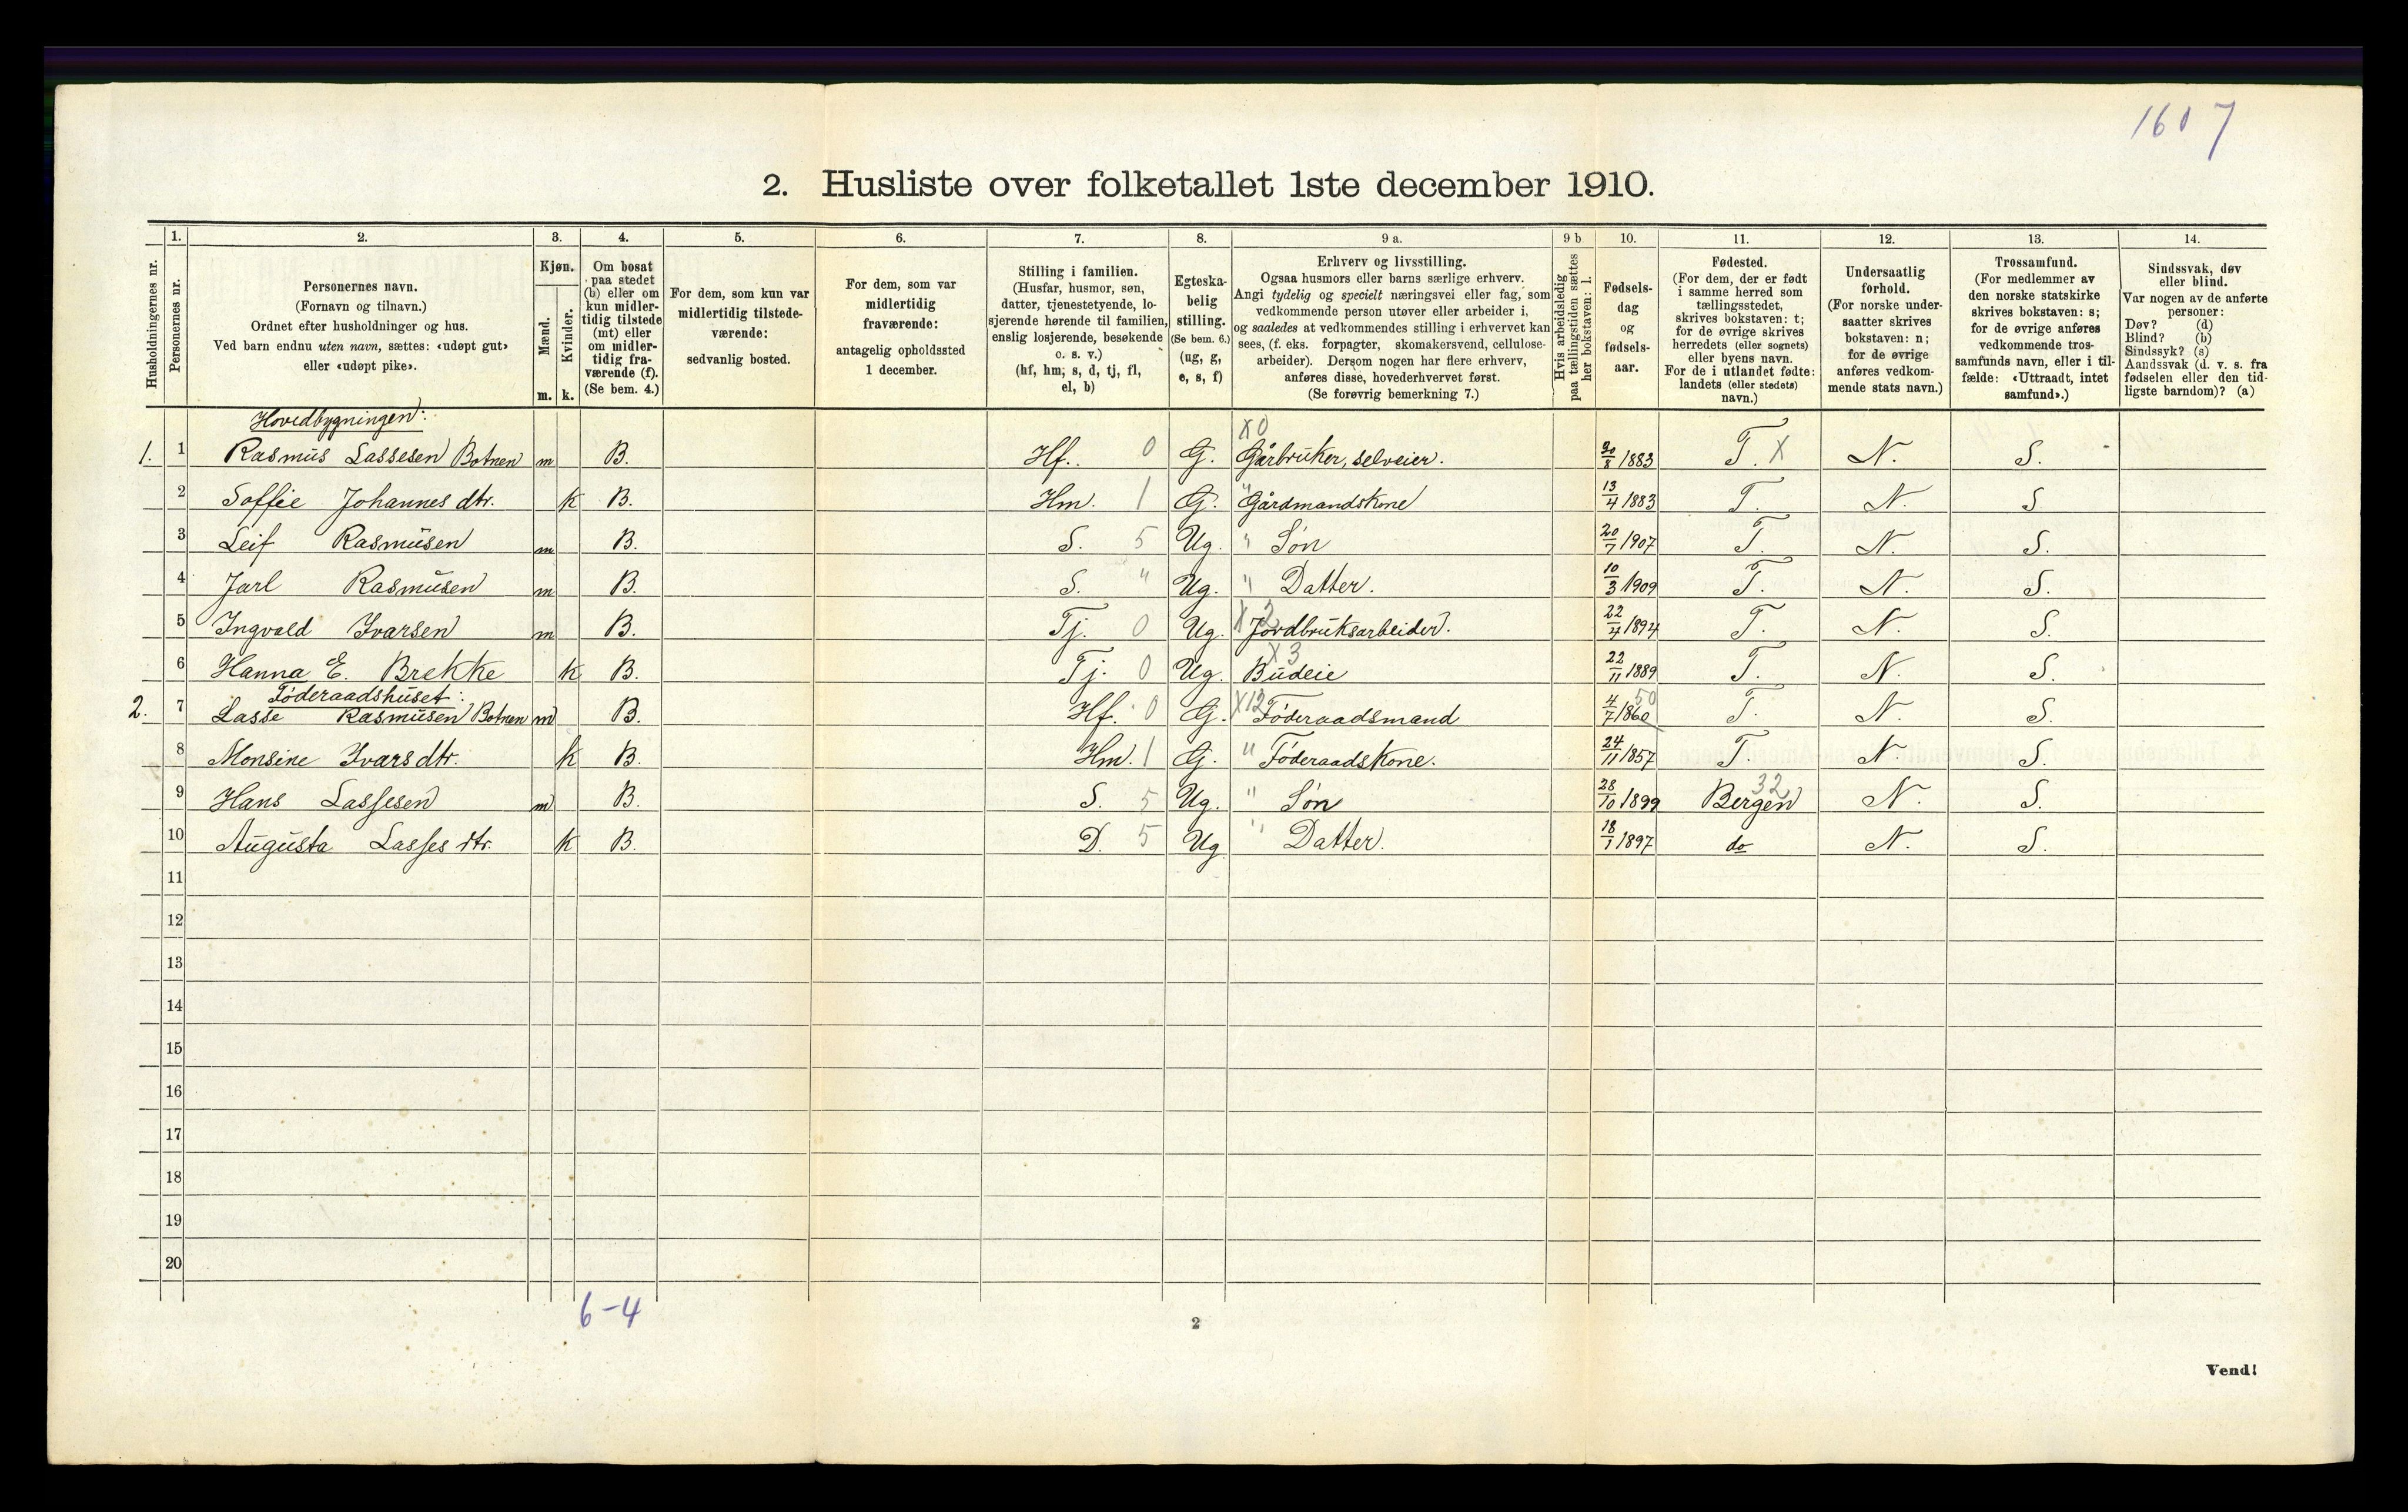 1607
2. Husliste over folketallet 1ste december 1910.
Husholdningernes nr.
1. 2. 3. 4. 5. 6. 7. 8. 9 a. 9 b 10. 11. 12. 13. 14.
Personernes nr.
Personernes navn.
(Fornavn og tilnavn.)
Ordnet efter husholdninger og hus.
Ved barn endnu uten navn, sættes: «udøpt gut»
eller «udøpt pike».
Kjøn.
Mænd.
Kvinder.
m. k.
Om bosat
paa stedet
(b) eller om
kun midler-
tidig tilstede
(mt) eller
om midler-
tidig fra-
værende (f).
(Se bem. 4.)
For dem, som kun var
midlertidig tilstede-
værende:
sedvanlig bosted.
For dem, som var
midlertidig
fraværende:
antagelig opholdssted
1 december.
Stilling i familien.
(Husfar, husmor, søn,
datter, tjenestetyende, lo-
sjerende hørende til familien,
enslig losjerende, besøkende
o. s. v.)
(hf, hm; s, d, tj, fl,
el, b)
Egteska-
belig
stilling.
(Se bem. 6.)
(ug, g,
e, s, f)
Erhverv og livsstilling.
Ogsaa husmors eller barns særlige erhverv.
Angi tydelig og specielt næringsvei eller fag, som
vedkommende person utøver eller arbeider i,
og saaledes at vedkommendes stilling i erhvervet kan
sees, (f. eks. forpagter, skomakersvend, cellulose-
arbeider). Dersom nogen har flere erhverv,
anføres disse, hovederhvervet først.
(Se forøvrig bemerkning 7.)
Hvis arbeidsledig
paa tællingstiden sættes
her bokstaven: l.
Fødsels-
dag
og
fødsels-
aar.
Fødested.
(For dem, der er født
i samme herred som
tællingsstedet,
skrives bokstaven: t;
for de øvrige skrives
herredets (eller sognets)
eller byens navn.
For de i utlandet fødte:
landets (eller stedets)
navn.)
Undersaatlig
forhold.
(For norske under-
saatter skrives
bokstaven: n;
for de øvrige
anføres vedkom-
mende stats navn.)
Trossamfund.
(For medlemmer av
den norske statskirke
skrives bokstaven: s;
for de øvrige anføres
vedkommende tros-
samfunds navn, eller i til-
fælde: «Uttraadt, intet
samfund».)
Sindssvak, døv
eller blind.
Var nogen av de anførte
personer:
Døv? (d)
Blind? (b)
Sindssyk? (s)
Aandssvak (d. v. s. fra
fødselen eller den tid-
ligste barndom)? (a)
Hovedbygningen:
1. 1 Rasmus Lassesen Botnen m B. Hf. 0 G. X0 Gårbruker, selveier. 30/8 1883 T. X N. S.
2 Soffie Johannes dtr. k B. Hm. 1 G. " Gårdmandskone 13/4 1883 T. N. S
3 Leif Rasmusen m B. S. 5 Ug. " Søn 20/7 1907 T. N. S.
4 Jarl Rasmusen m B. S. " Ug. " Datter. 10/3 1909 T. N. S.
5 Ingvald Ivarsen m B. Tj. 0 Ug. X2 Jordbruksarbeider. 22/4 1894 T. N. S.
6 Hanna E. Brekke k B. Tj. 0 Ug. X3 Budeie 22/11 1889 T. N. S.
Føderaadshuset:
2. 7 Lasse Rasmusen Botnen m B. Hf. 0 G. X12 Føderaadsmand 4/7 1860 50 T. N. S.
8 Monsine Ivarsdtr. k B. Hm. 1 G. " Føderaadskone. 24/11 1857 T. N. S.
9 Hans Lassesen m B. S. 5 Ug. " Søn 28/10 1899 Bergen 32 N. S.
10 Augusta Lasses dtr. k B. D. 5 Ug " Datter. 18/1 1897 do N. S.
11
12
13
14
15
16
17
18
19
20
6-4
2
Vend!